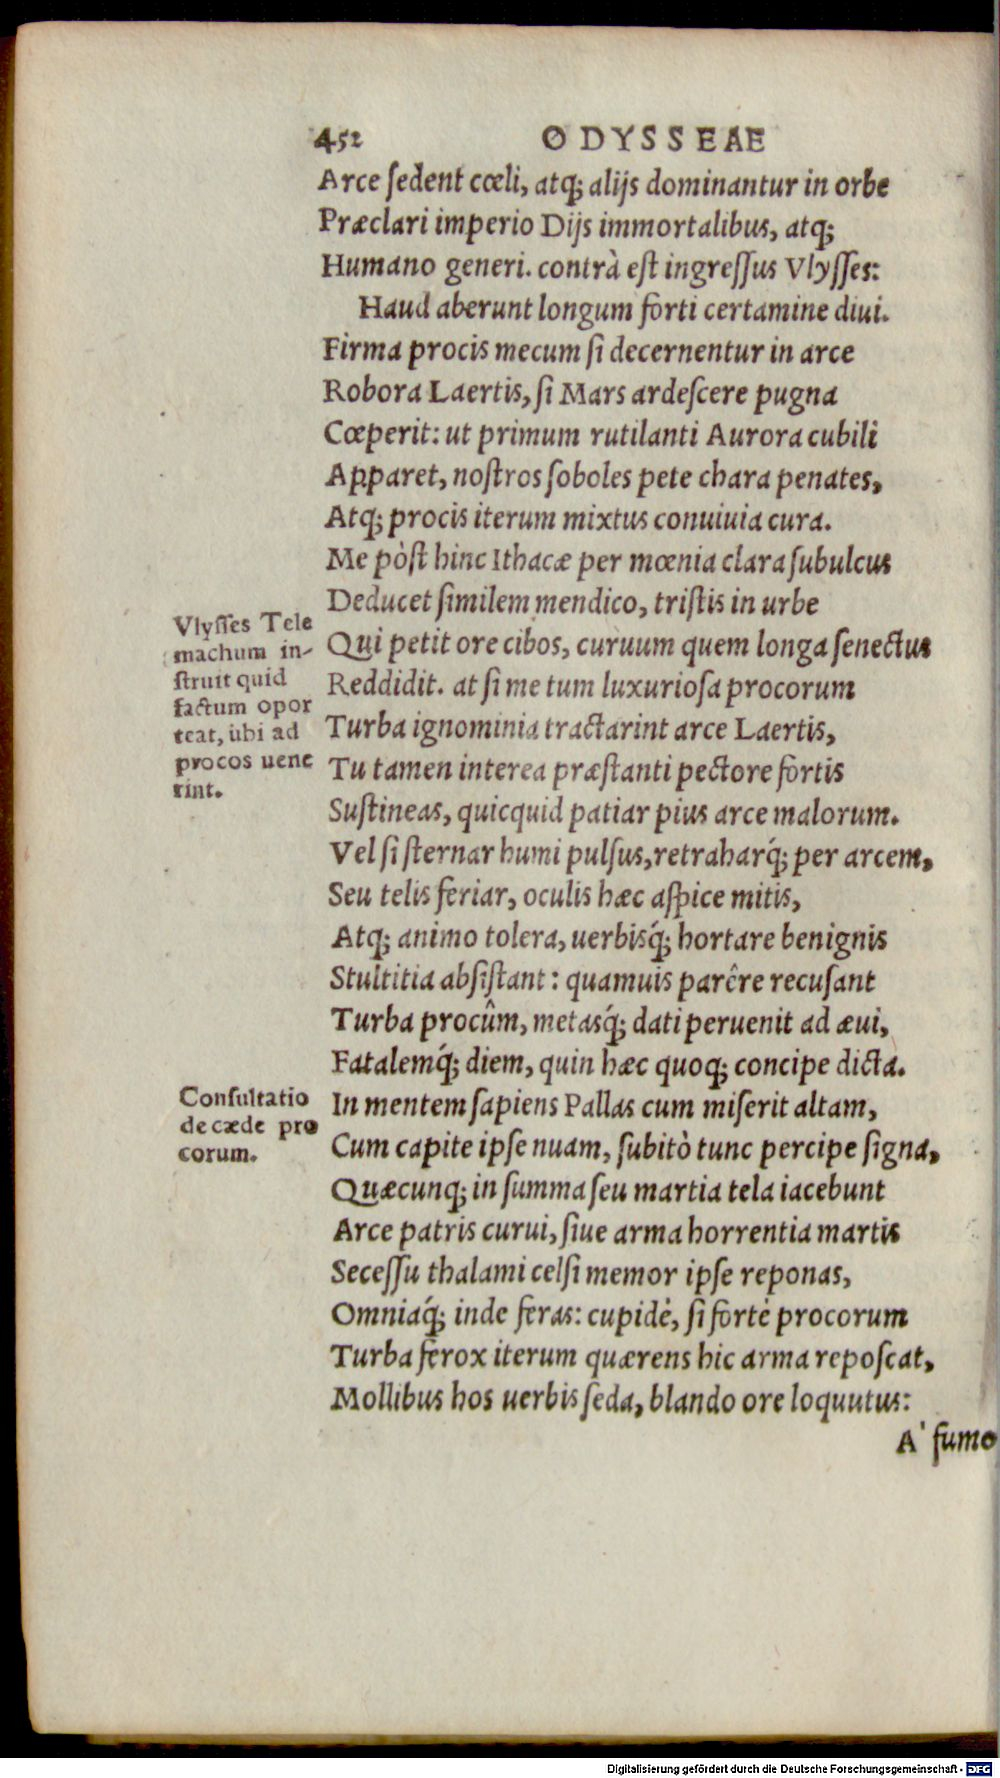 452 ODYSSEAE
Arce ſedent cœli, atq; alijs dominantur in orbe
Præclari imperio Dijs immortalibus, atq;
Humano generi. contrà eſt ingreſſus Vlyſſes:
Haud aberunt longum forti certamine diui.
Firma procis mecum ſi decernentur in arce
Robora Laertis, ſi Mars ardeſcere pugna
Cœperit: ut primum rutilanti Aurora cubili
Apparet, noſtros ſoboles pete chara penates,
Atq; procis iterum mixtus conuiuia cura.
Me pòſt hinc Ithacæ per mœnia clara ſubulcus
Deducet ſimilem mendico, triſtis in urbe
Qui petit ore cibos, curuum quem longa ſenectus
Reddidit. at ſi me tum luxurioſa procorum
Turba ignominia tractarint arce Laertis,
Tu tamen interea præſtanti pectore fortis
Suſtineas, quicquid patiar pius arce malorum.
Vel ſi ſternar humi pulſus, retraharq́; per arcem,
Seu telis feriar, oculis hæc aſpice mitis,
Atq; animo tolera, uerbisq́; hortare benignis
Stultitia abſiſtant: quamuis parêre recuſant
Turba procûm, metasq́; dati peruenit ad æui,
Fatalemq́; diem, quin hæc quoq; concipe dicta.
In mentem ſapiens Pallas cum miſerit altam,
Cum capite ipſe nuam, ſubitò tunc percipe ſigna,
Quæcunq; in ſumma ſeu martia tela iacebunt
Arce patris curui, ſiue arma horrentia martis
Seceſſu thalami celſi memor ipſe reponas,
Omniaq́; inde feras: cupidè, ſi fortè procorum
Turba ferox iterum quærens hic arma repoſcat,
Mollibus hos uerbis ſeda, blando ore loquutus:
A' fumo
Vlyſſes Tele
machum in-
ſtruit quid
factum opor
teat, ubi ad
procos uene
rint.
Conſultatio
de cæde pro
corum.
Digitalisierung gefördert durch die Deutsche Forschungsgemeinschaft - DFG